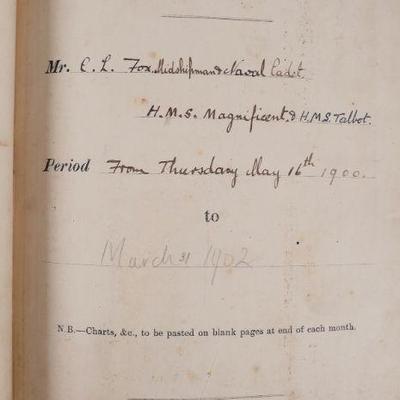 Mr. C. L. Fox, Midshipman & Naval Cadet.
H.M.S. Magnificent, & H.M.S. Talbot.
Period From Thursday May 16th 1900.
to
March 31 1902
N.B.—Charts, &c., to be pasted on blank pages at end of each month.